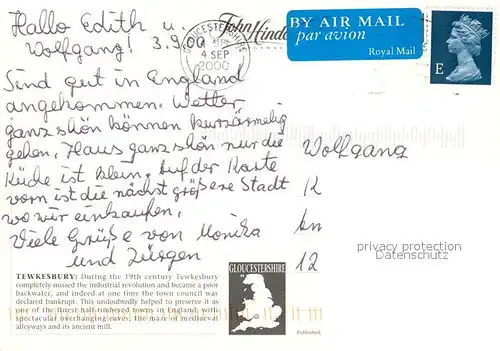 Hallo Edith u.
Wolfgang! 3.9.00
Sind gut in England
angekommen. Wetter
ganz schön können kurzärmelig
gehen. Haus ganz schön nur die
Küche ist klein. Auf der Karte
vorn ist die nächst größere Stadt
wo wir einkaufen.
Viele Grüße von Monika
und Jürgen
GLOUCESTERSHIRE
4 SEP
2000
John Hinde
BY AIR MAIL
par avion
Royal Mail
E
Wolfgang
K
12
privacy protection
Datenschutz
TEWKESBURY: During the 19th century Tewkesbury
completely missed the industrial revolution and became a poor
backwater, and indeed at one time the town council was
declared bankrupt. This undoubtedly helped to preserve it as
one of the finest half-timbered towns in England, with
spectacular overhanging eaves, the maze of mediaeval
alleyways and its ancient mill.
GLOUCESTERSHIRE
Published